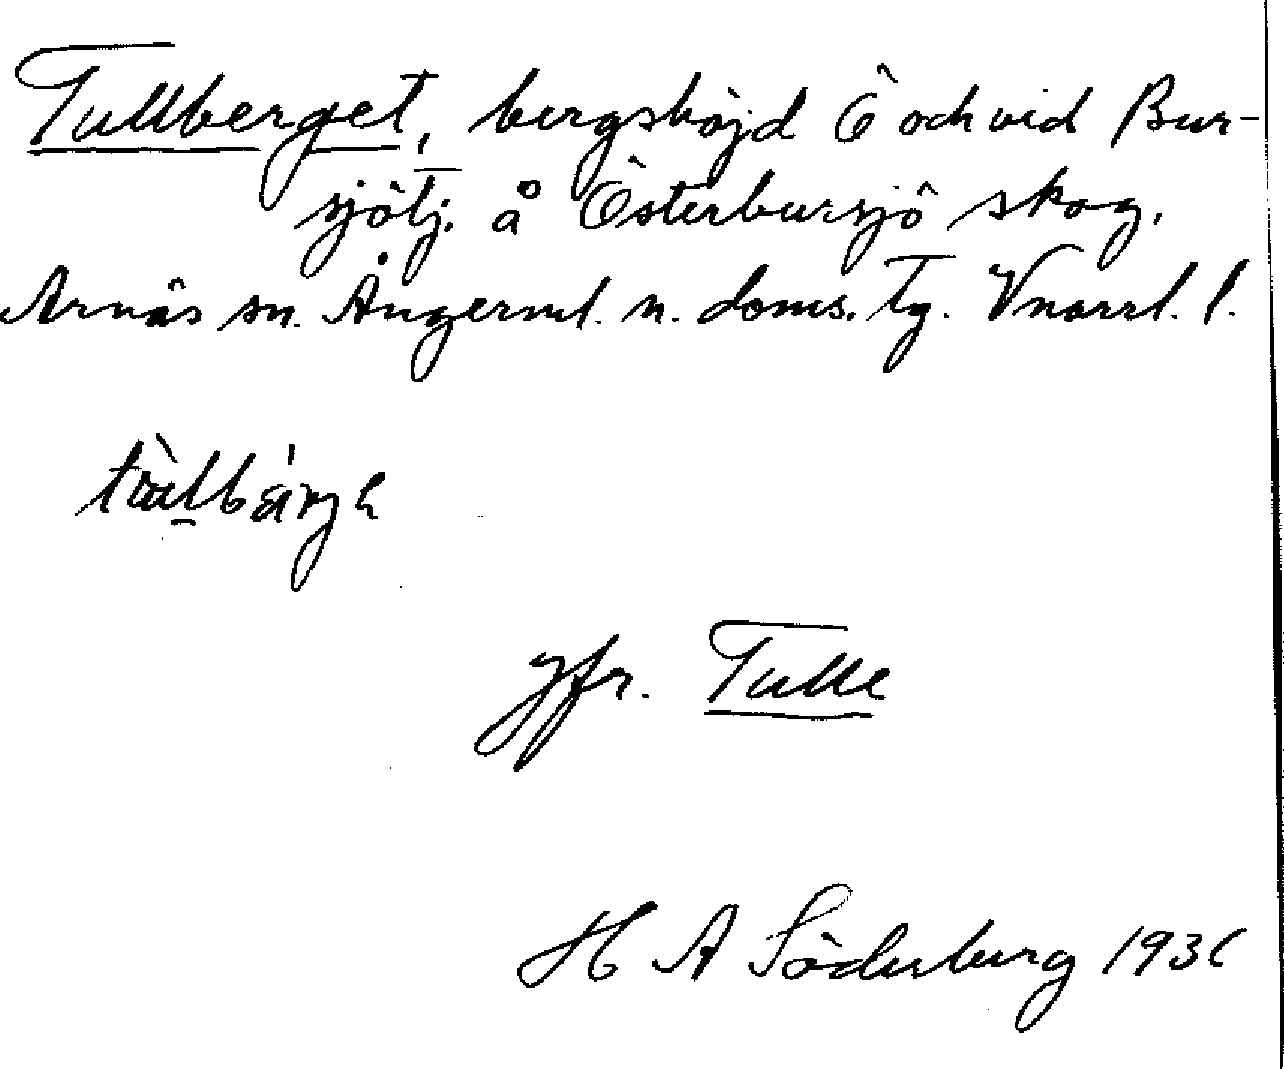 Tullberget, bergshöjd Ö och vid Bur-
sjötj. å Österbursjö skog.
Arnäs sn. Ångerml. n. doms. tg. Vnorrl. l.
Jfr. Tulle
H A Söderberg 1936